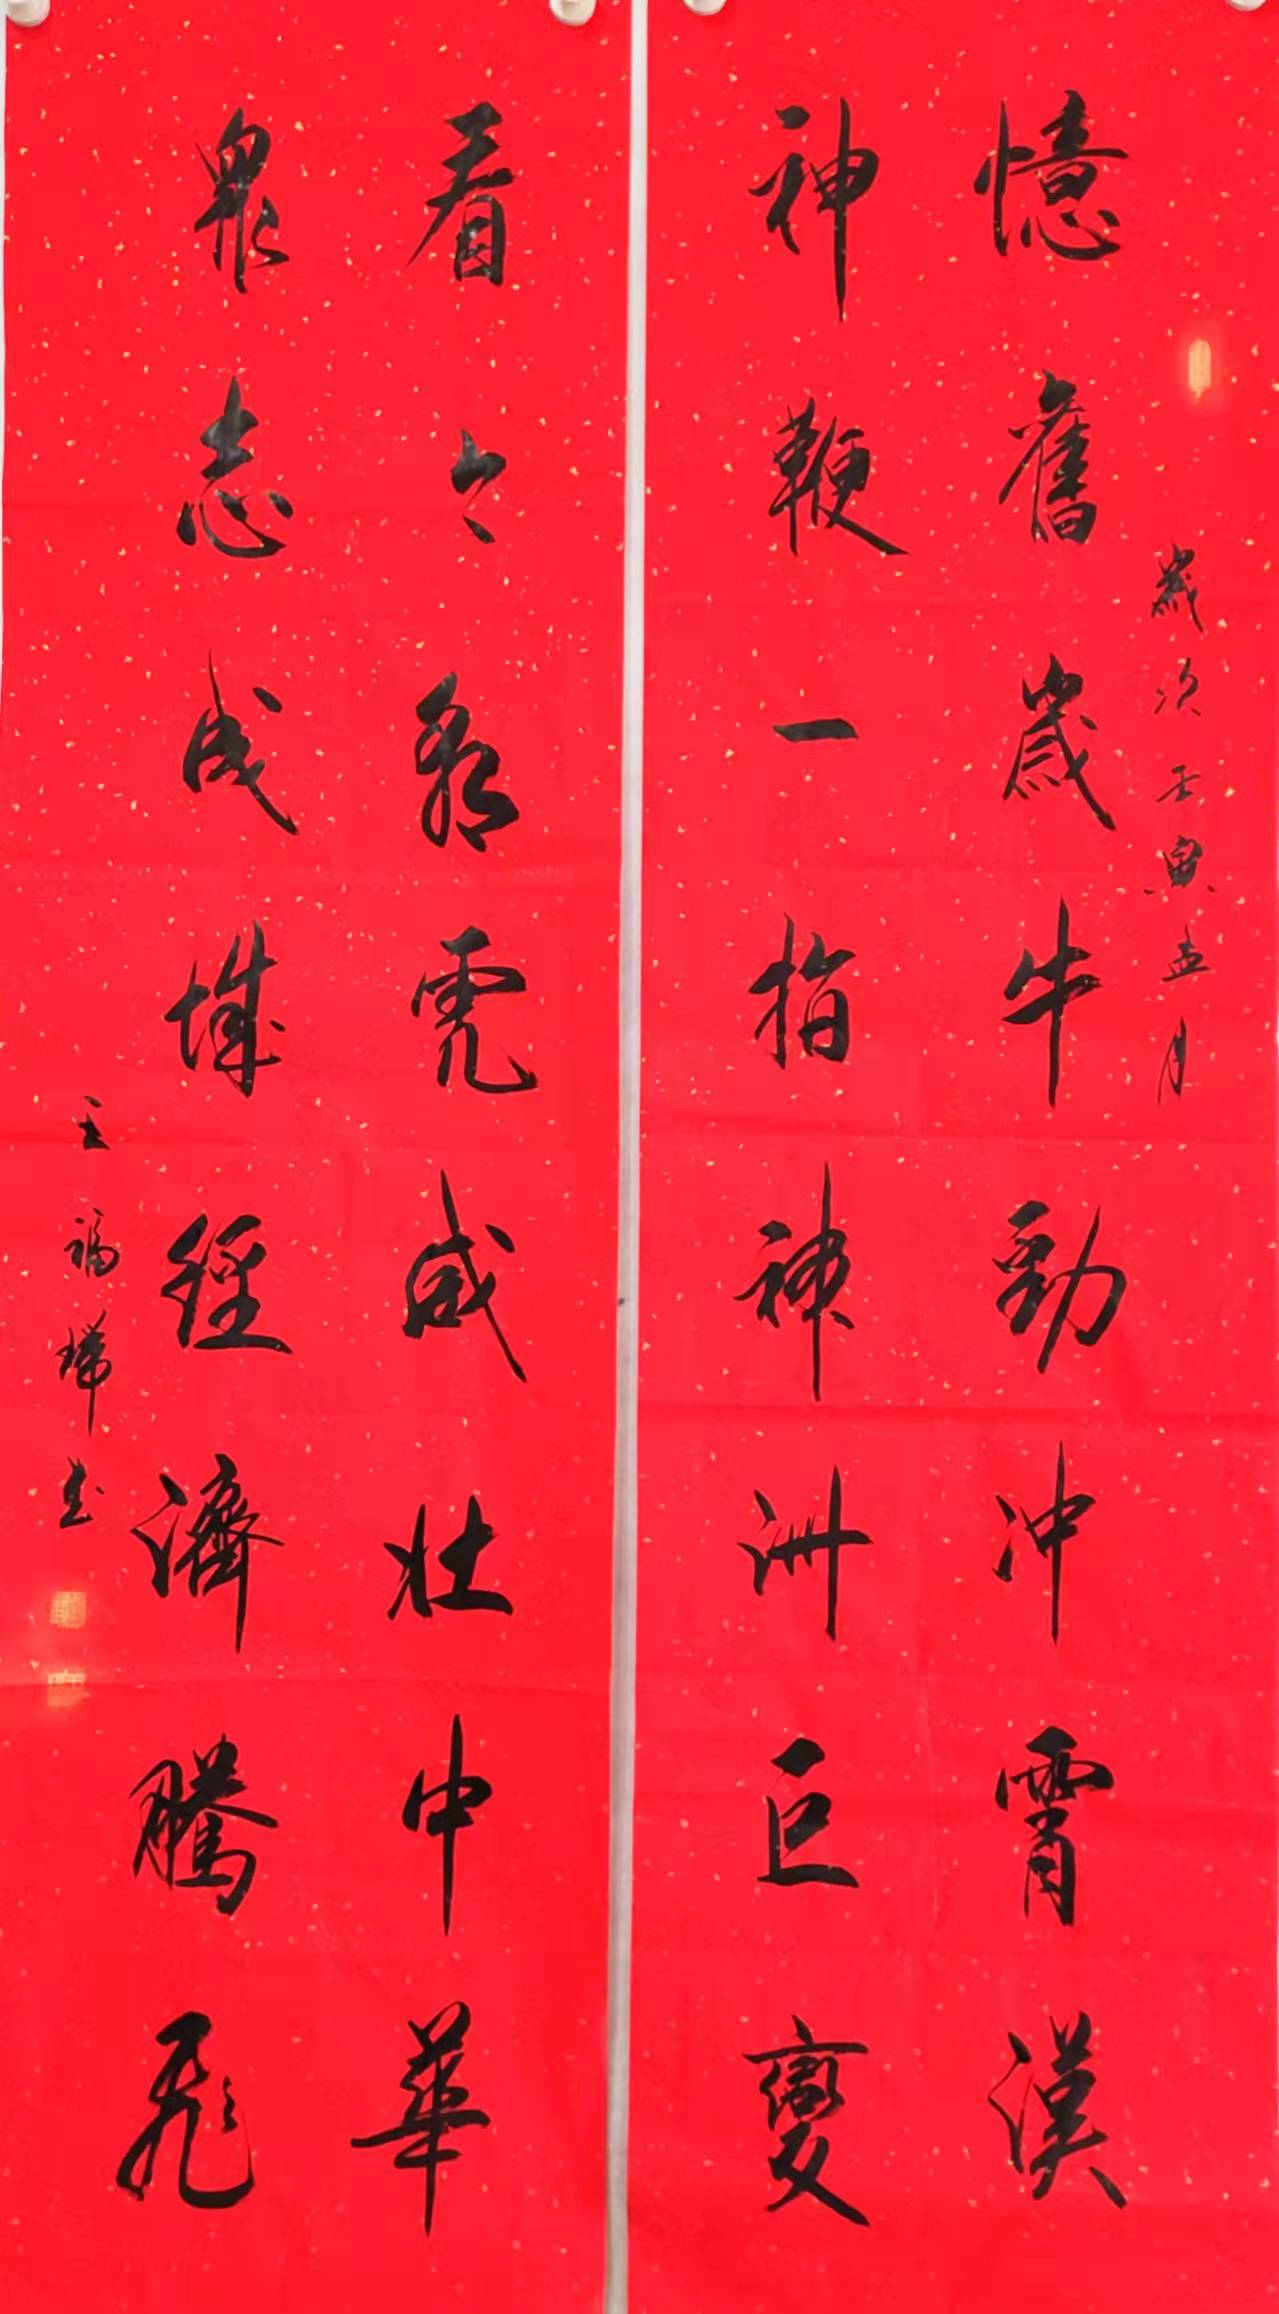 歲次壬寅孟月
憶舊歲牛勁冲霄漢
神鞭一指神洲巨變
看今朝虎威壮中華
眾志成城經濟騰飛
王福瑞书